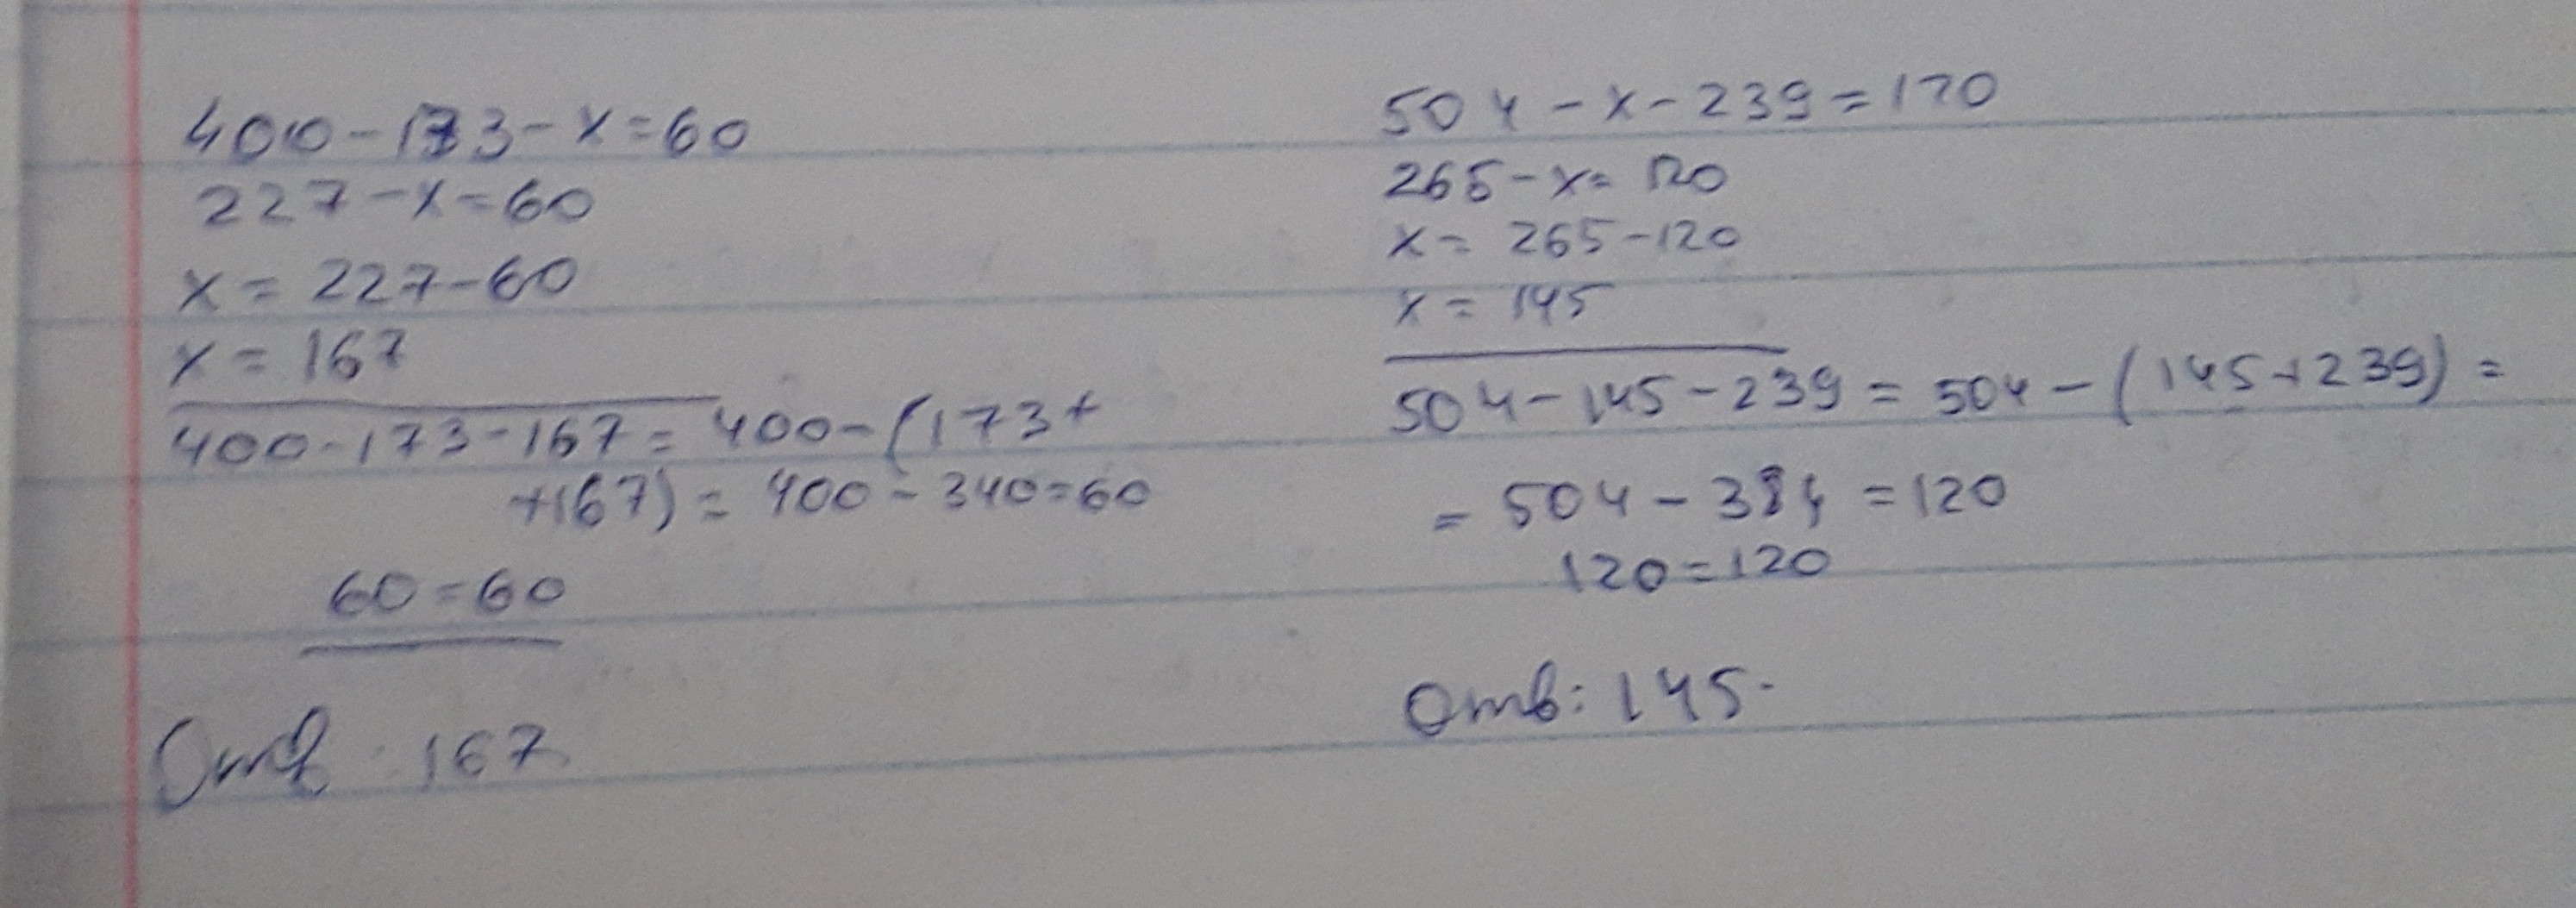 400-173-x=60
227-x=60
x=227-60
x=167
400-173-167=400-(173+
+167)=400-340=60
60=60
Отв 167
504-x-239=120
265-x=120
x=265-120
x=145
504-145-239=504-(145+239)=
=504-384=120
120=120
Отв: 145.